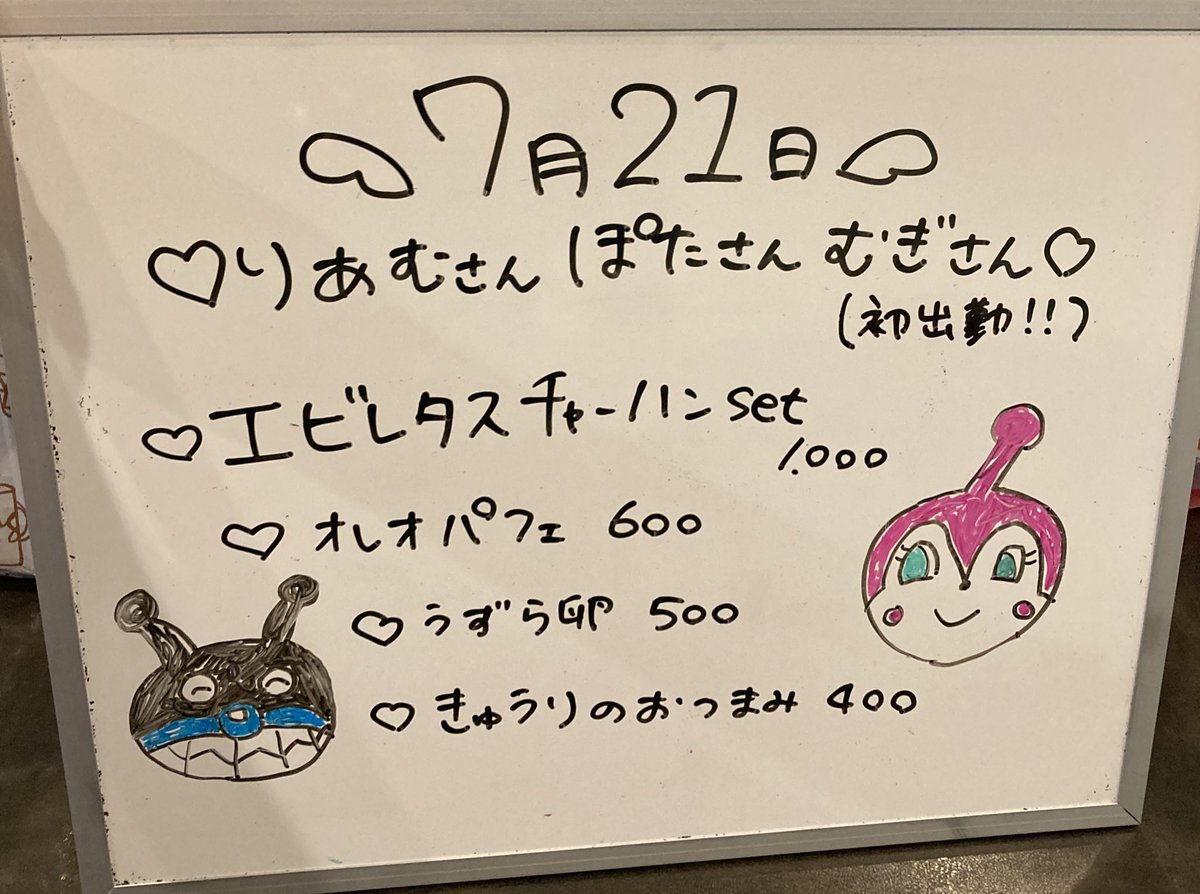 7月21日
♡りあむさん ぽたさん むぎさん♡
(初出勤!!)
♡エビレタスチャーハンset
1.000
♡オレオパフェ 600
♡うずら卵 500
♡きゅうりのおつまみ 400